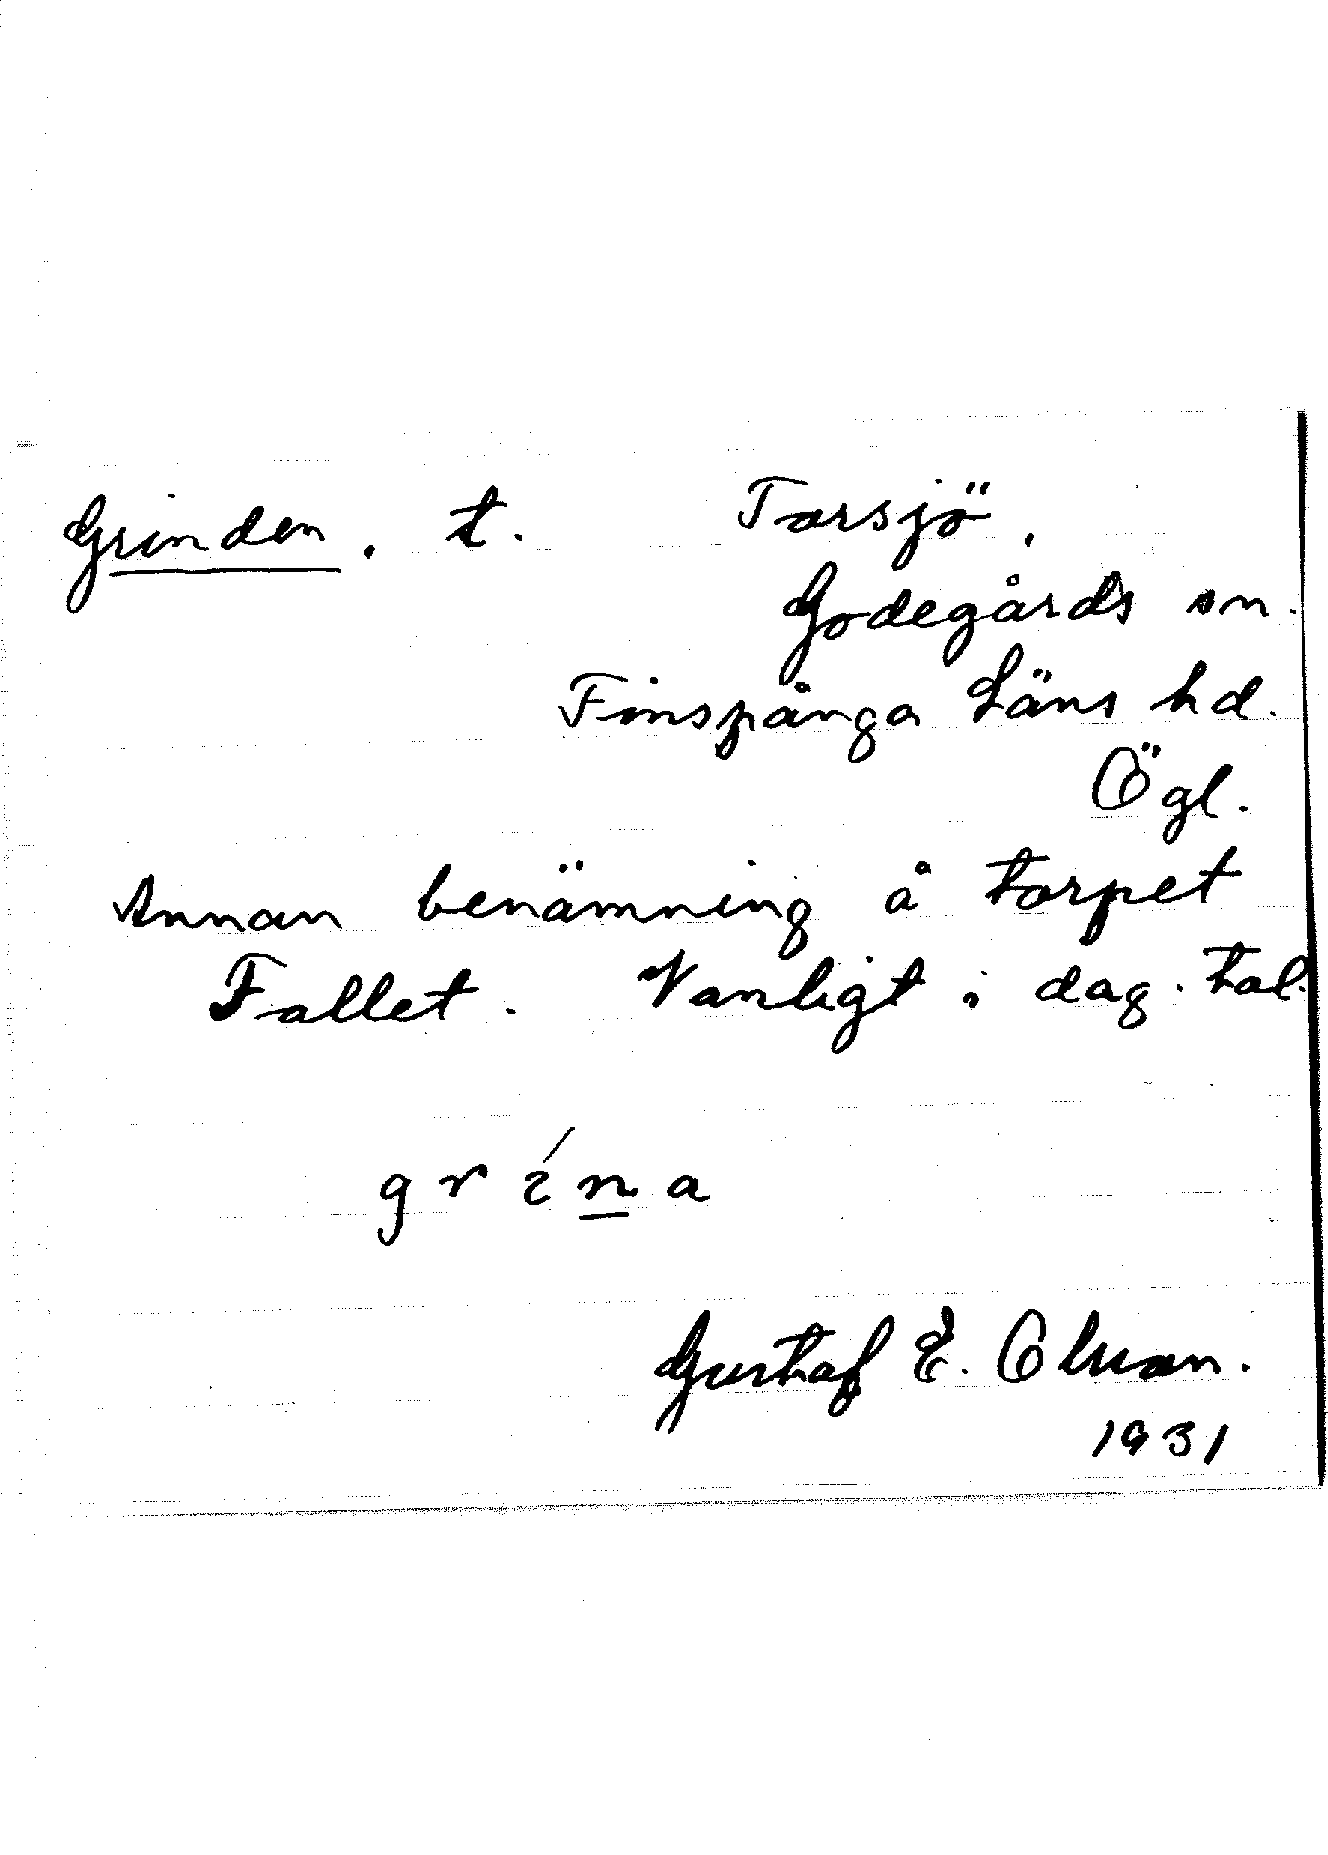 Grinden. t. Torsjö,
Godegårds sn.
Finspånga Läns hd.
Ögl.
Annan benämning å torpet
Fallet. Vanligt i dag. tal.
grína
Gustaf E. Olsson.
1931